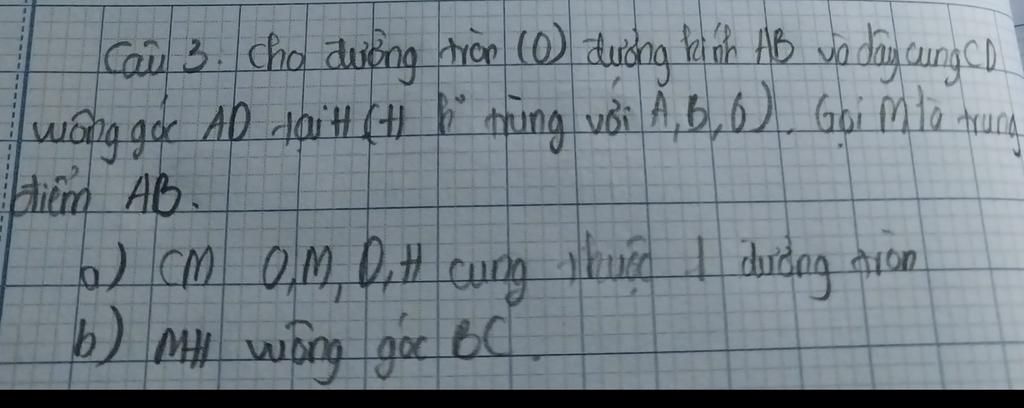 Câu 3. Cho đường tròn (O) đường kính AB và dây cung CD
vuông góc AD tại H (H k° trùng với A, B, O). Gọi M là trung
điểm AB.
a) CM O, M, D, H cùng thuộc 1 đường tròn
b) MH vuông góc BC.